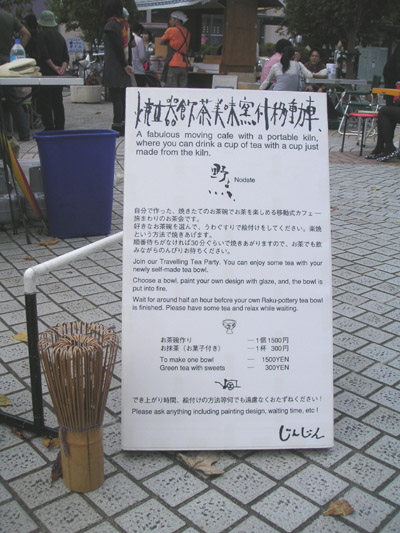 A fabulous moving cafe with a portable kiln,
where you can drink a cup of tea with a cup just
made from the kiln.
野点
Nodate
自分で作った、焼きたてのお茶碗でお茶を楽しめる移動式カフェー
旅まわりのお茶会です。
好きなお茶碗を選んで、うわぐすりで絵付けをしてください。楽焼
という方法で焼きあげます。
順番待ちがなければ30分ぐらいで焼きあがりますので、お茶でも飲
みながらのんびりお待ちください。
Join our Travelling Tea Party. You can enjoy some tea with your
newly self-made tea bowl.
Choose a bowl, paint your own design with glaze, and, the bowl is
put into fire.
Wait for around half an hour before your own Raku-pottery tea bowl
is finished. Please have some tea and relax while waiting.
お茶碗作り ー1個 1500円
お抹茶（お菓子付き） ー1杯 300円
To make one bowl – 1500YEN
Green tea with sweets – 300YEN
でき上がり時間、絵付けの方法等何でも遠慮なくおたずねください！
Please ask anything including painting design, waiting time, etc !
じんじん